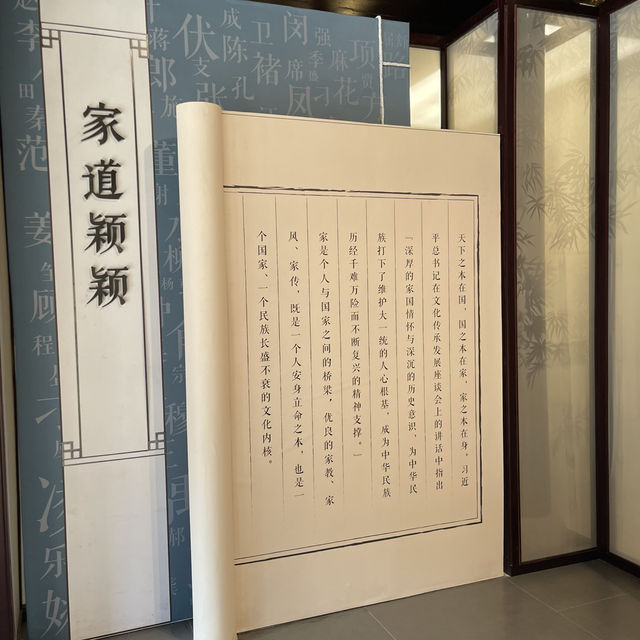 家道颖颖
天下之本在国，国之本在家，家之本在身。习近
平总书记在文化传承发展座谈会上的讲话中指出
“深厚的家国情怀与深沉的历史意识，为中华民
族打下了维护大一统的人心根基，成为中华民族
历经千难万险而不断复兴的精神支撑。”
家是个人与国家之间的桥梁，优良的家教、家
风、家传，既是一个人安身立命之本，也是一
个国家、一个民族长盛不衰的文化内核。
李
田
秦
范
姜
顾
程
蒋
郎
董
伏
支
成
陈
孔
卫
褚
闵
席
凤
强
季
麻
花
项
杨
宗
穆